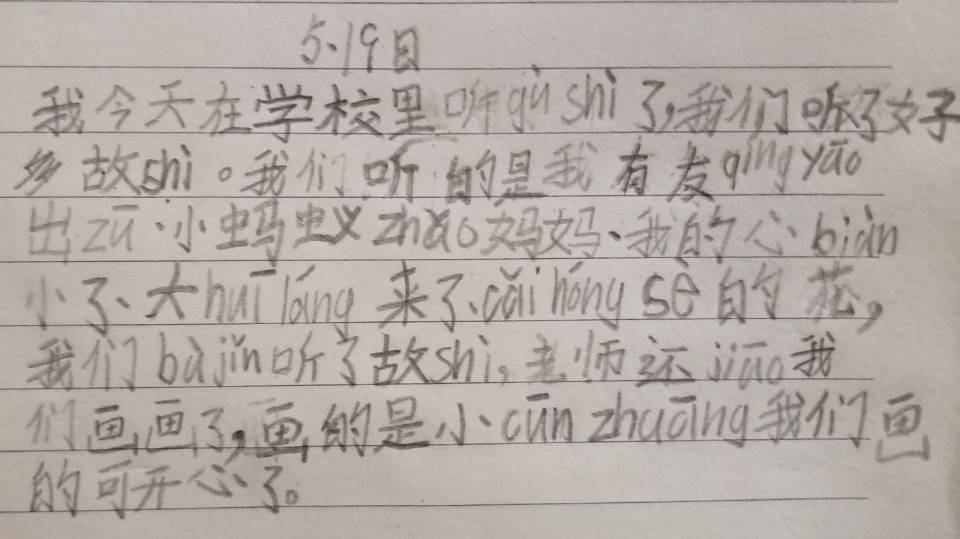 5.19日
我今天在学校里听gù shì了,我们听了好
多故shì。我们听的是我有友qíng yāo
出zū、小蚂蚁zhǎo妈妈、我的心biàn
小了、大huī láng来了、cǎi hóng sè的花,
我们bà jǐn听了故shì,老师还jiāo我
们画画了,画的是小cūn zhuāng我们画
的可开心了。